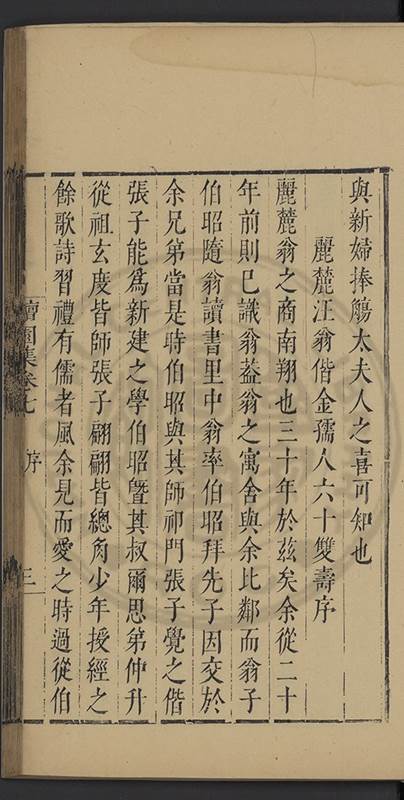 與新婦捧觴太夫人之喜可知也
麗麓汪翁偕金孺人六十雙壽序
麗麓翁之商南翔也三十年於茲矣余從二十
年前則已識翁葢翁之寓舍與余比鄰而翁子
伯昭隨翁讀書里中翁率伯昭拜先子因交於
余兄弟當是時伯昭與其師祁門張子覺之偕
張子能爲新建之學伯昭暨其叔爾思弟仲升
從祖玄度皆師張子翩翩皆總角少年授經之
餘歌詩習禮有儒者風余見而愛之時過從伯
園集卷七 序 三